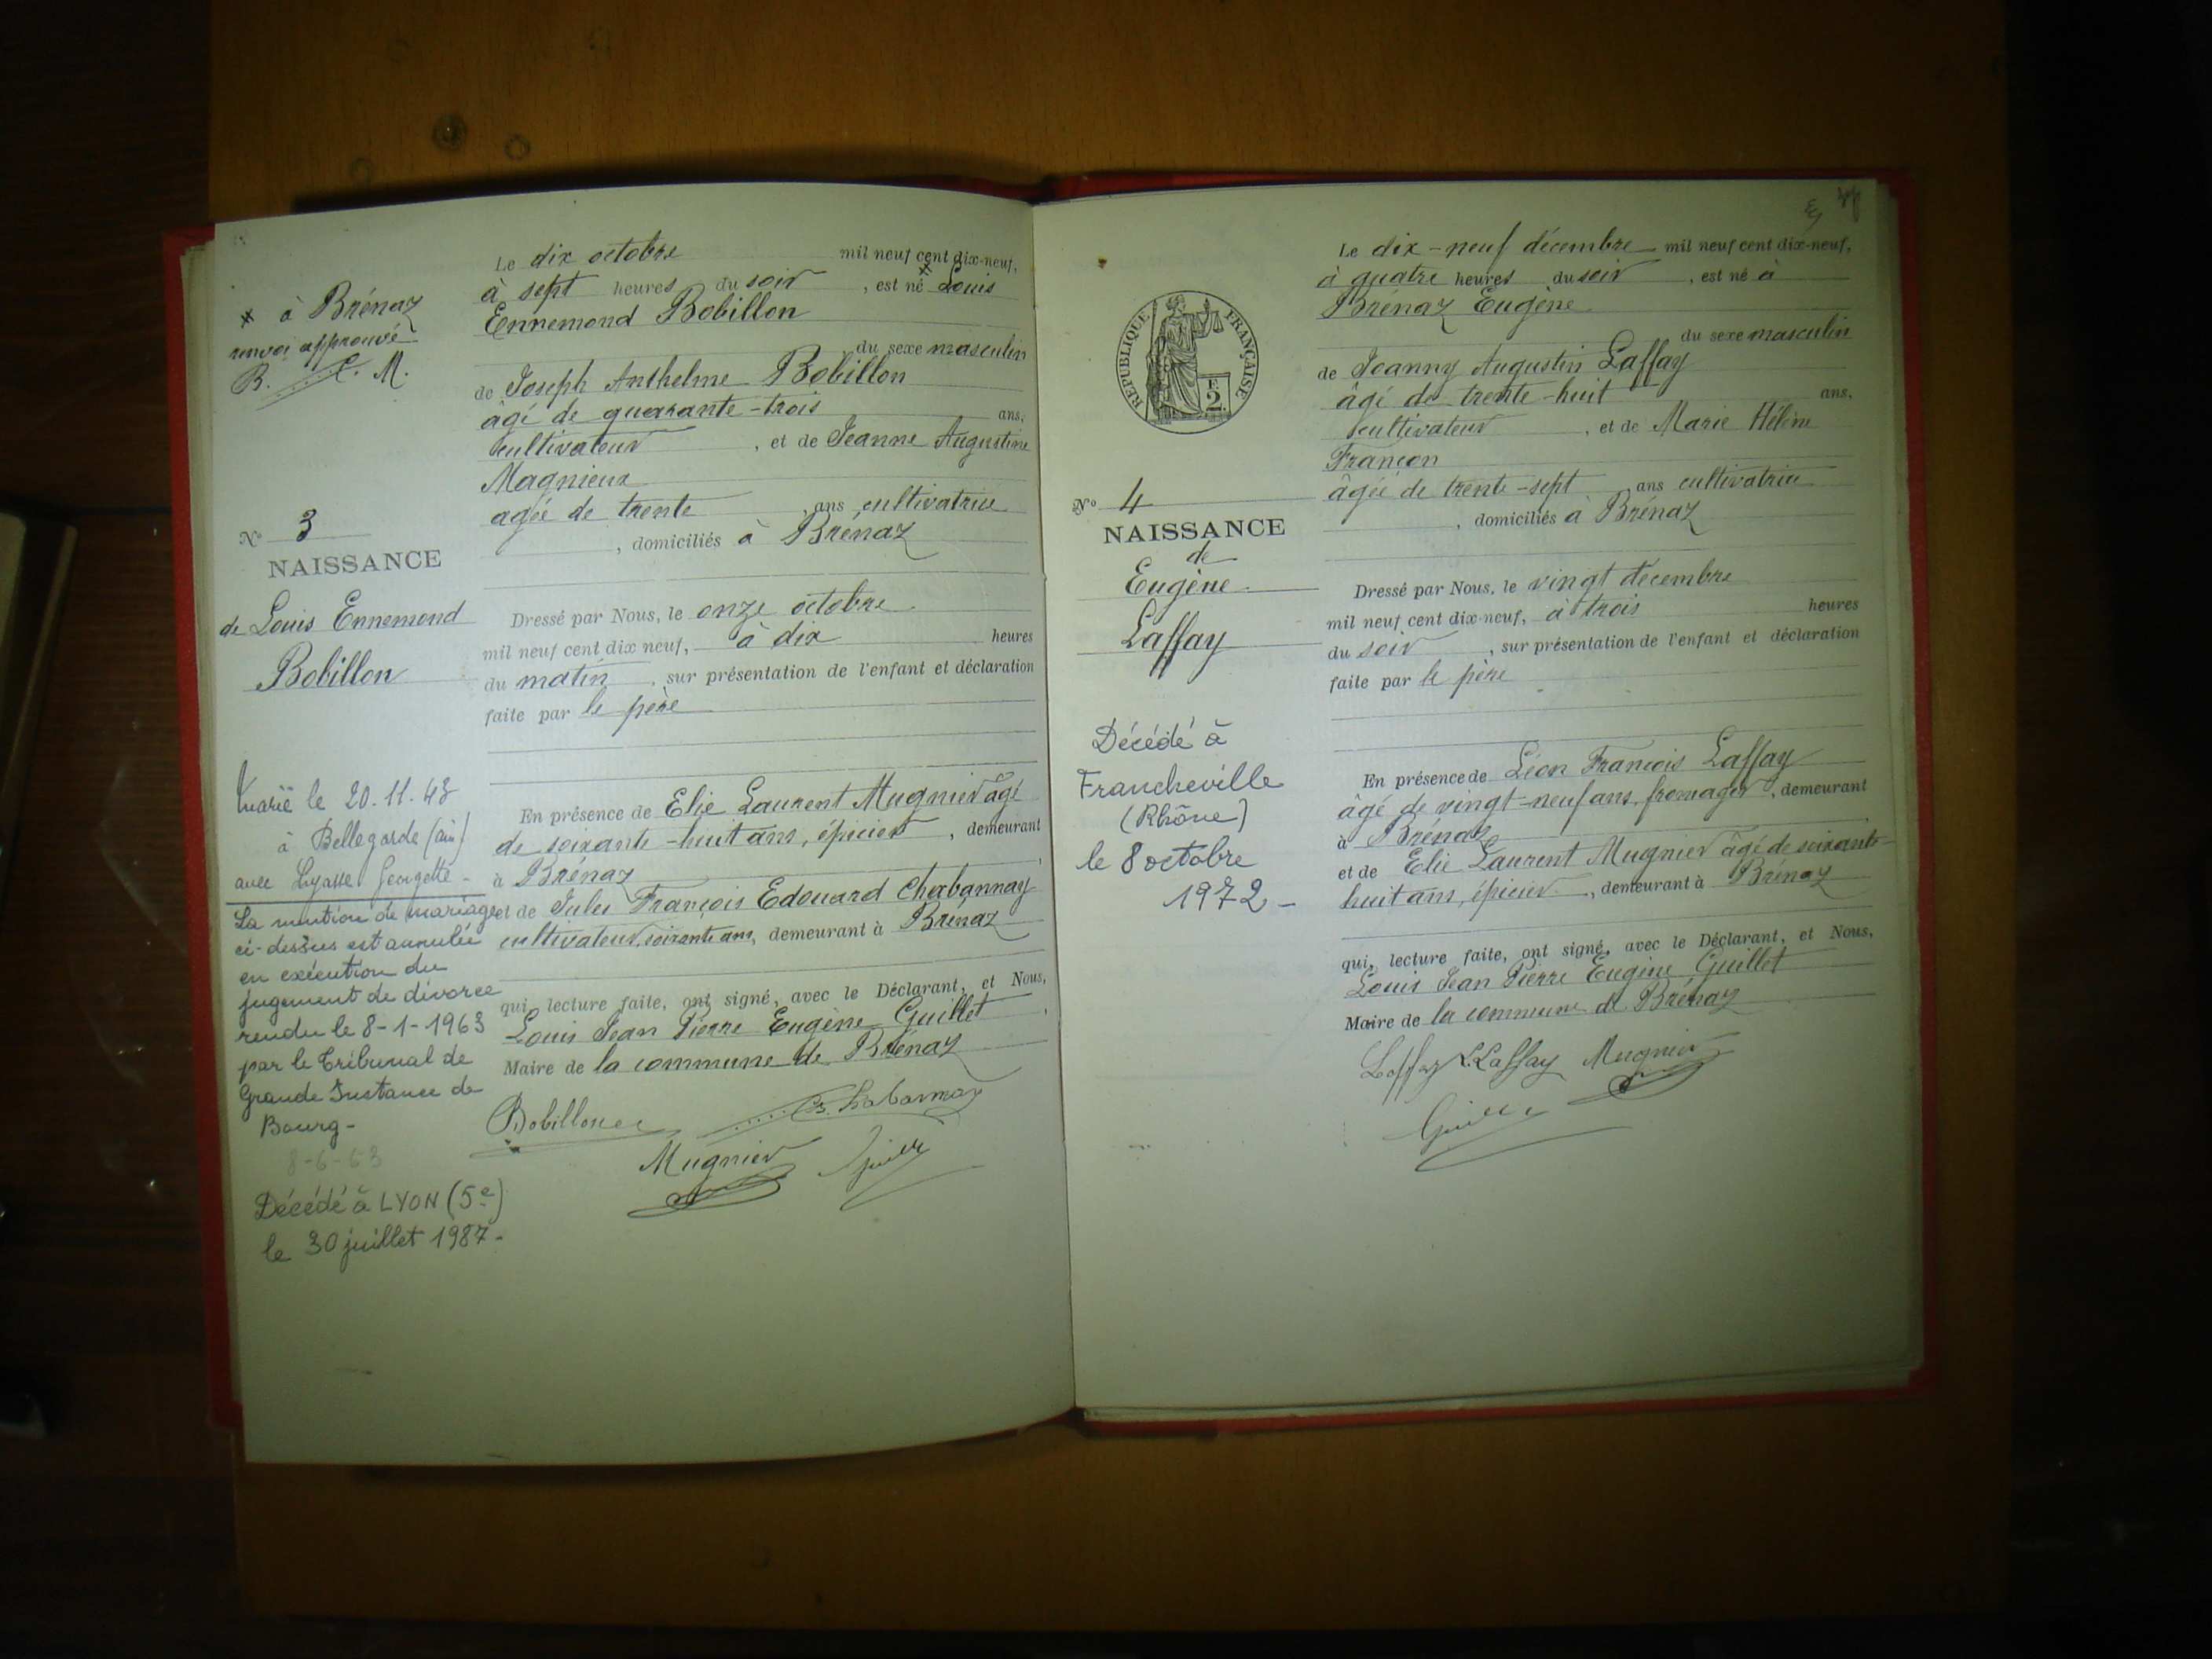 × à Brénaz
renvoi approuvé
B. C. M.
N° 3
NAISSANCE
de Louis Ennemond
Bobillon
Marié le 20.11.43
à Bellegarde (ain)
avec Georgette -
La mention de mariage
ci-dessus est annulée
en exécution du
jugement de divorce
rendu le 8-1-1963
par le Tribunal de
Grande Instance de
Bourg -
8-6-63
Décédé à LYON (5e)
le 30 juillet 1987 -
Le dix octobre mil neuf cent dix-neuf,
à sept heures du soir, est né × Louis
Ennemond Bobillon
du sexe masculin
de Joseph Anthelme Bobillon
âgé de quarante-trois ans,
cultivateur, et de Jeanne Augustine
Magnieux
agée de trente, ans cultivatrice
, domiciliés à Brénaz
Dressé par Nous, le onze octobre
mil neuf cent dix neuf, à dix heures
du matin, sur présentation de l'enfant et déclaration
faite par le père
En présence de Elie Laurent Mugnier âgé
de soixante-huit ans, épicier, demeurant
à Brénaz
et de Jules François Edouard Charbannay
cultivateur, soixante ans, demeurant à Brénaz
qui, lecture faite, ont signé, avec le Déclarant, et Nous,
Louis Jean Pierre Eugène Guillet
Maire de la commune de Brénaz
Bobillon
Mugnier
RÉPUBLIQUE FRANÇAISE
F
2
N° 4
NAISSANCE
de
Eugène
Laffay
Décédé à
Francheville
(Rhône)
le 8 octobre
1972 -
Le dix-neuf décembre mil neuf cent dix-neuf,
à quatre heures du soir, est né à
Brénaz Eugène
du sexe masculin
de Joanny Augustin Laffay
âgé de trente-huit ans,
cultivateur, et de Marie Hélène
Françon
âgée de trente-sept ans cultivatrice
, domiciliés à Brénaz
Dressé par Nous, le vingt décembre
mil neuf cent dix-neuf, à trois heures
du soir, sur présentation de l'enfant et déclaration
faite par le père
En présence de Léon François Laffay
âgé de vingt-neuf ans, fromager, demeurant
à Brénaz
et de Elie Laurent Mugnier âgé de soixante-
huit ans, épicier, demeurant à Brénaz
qui, lecture faite, ont signé, avec le Déclarant, et Nous,
Louis Jean Pierre Eugène Guillet
Maire de la commune de Brénaz
Laffay L. Laffay Mugnier